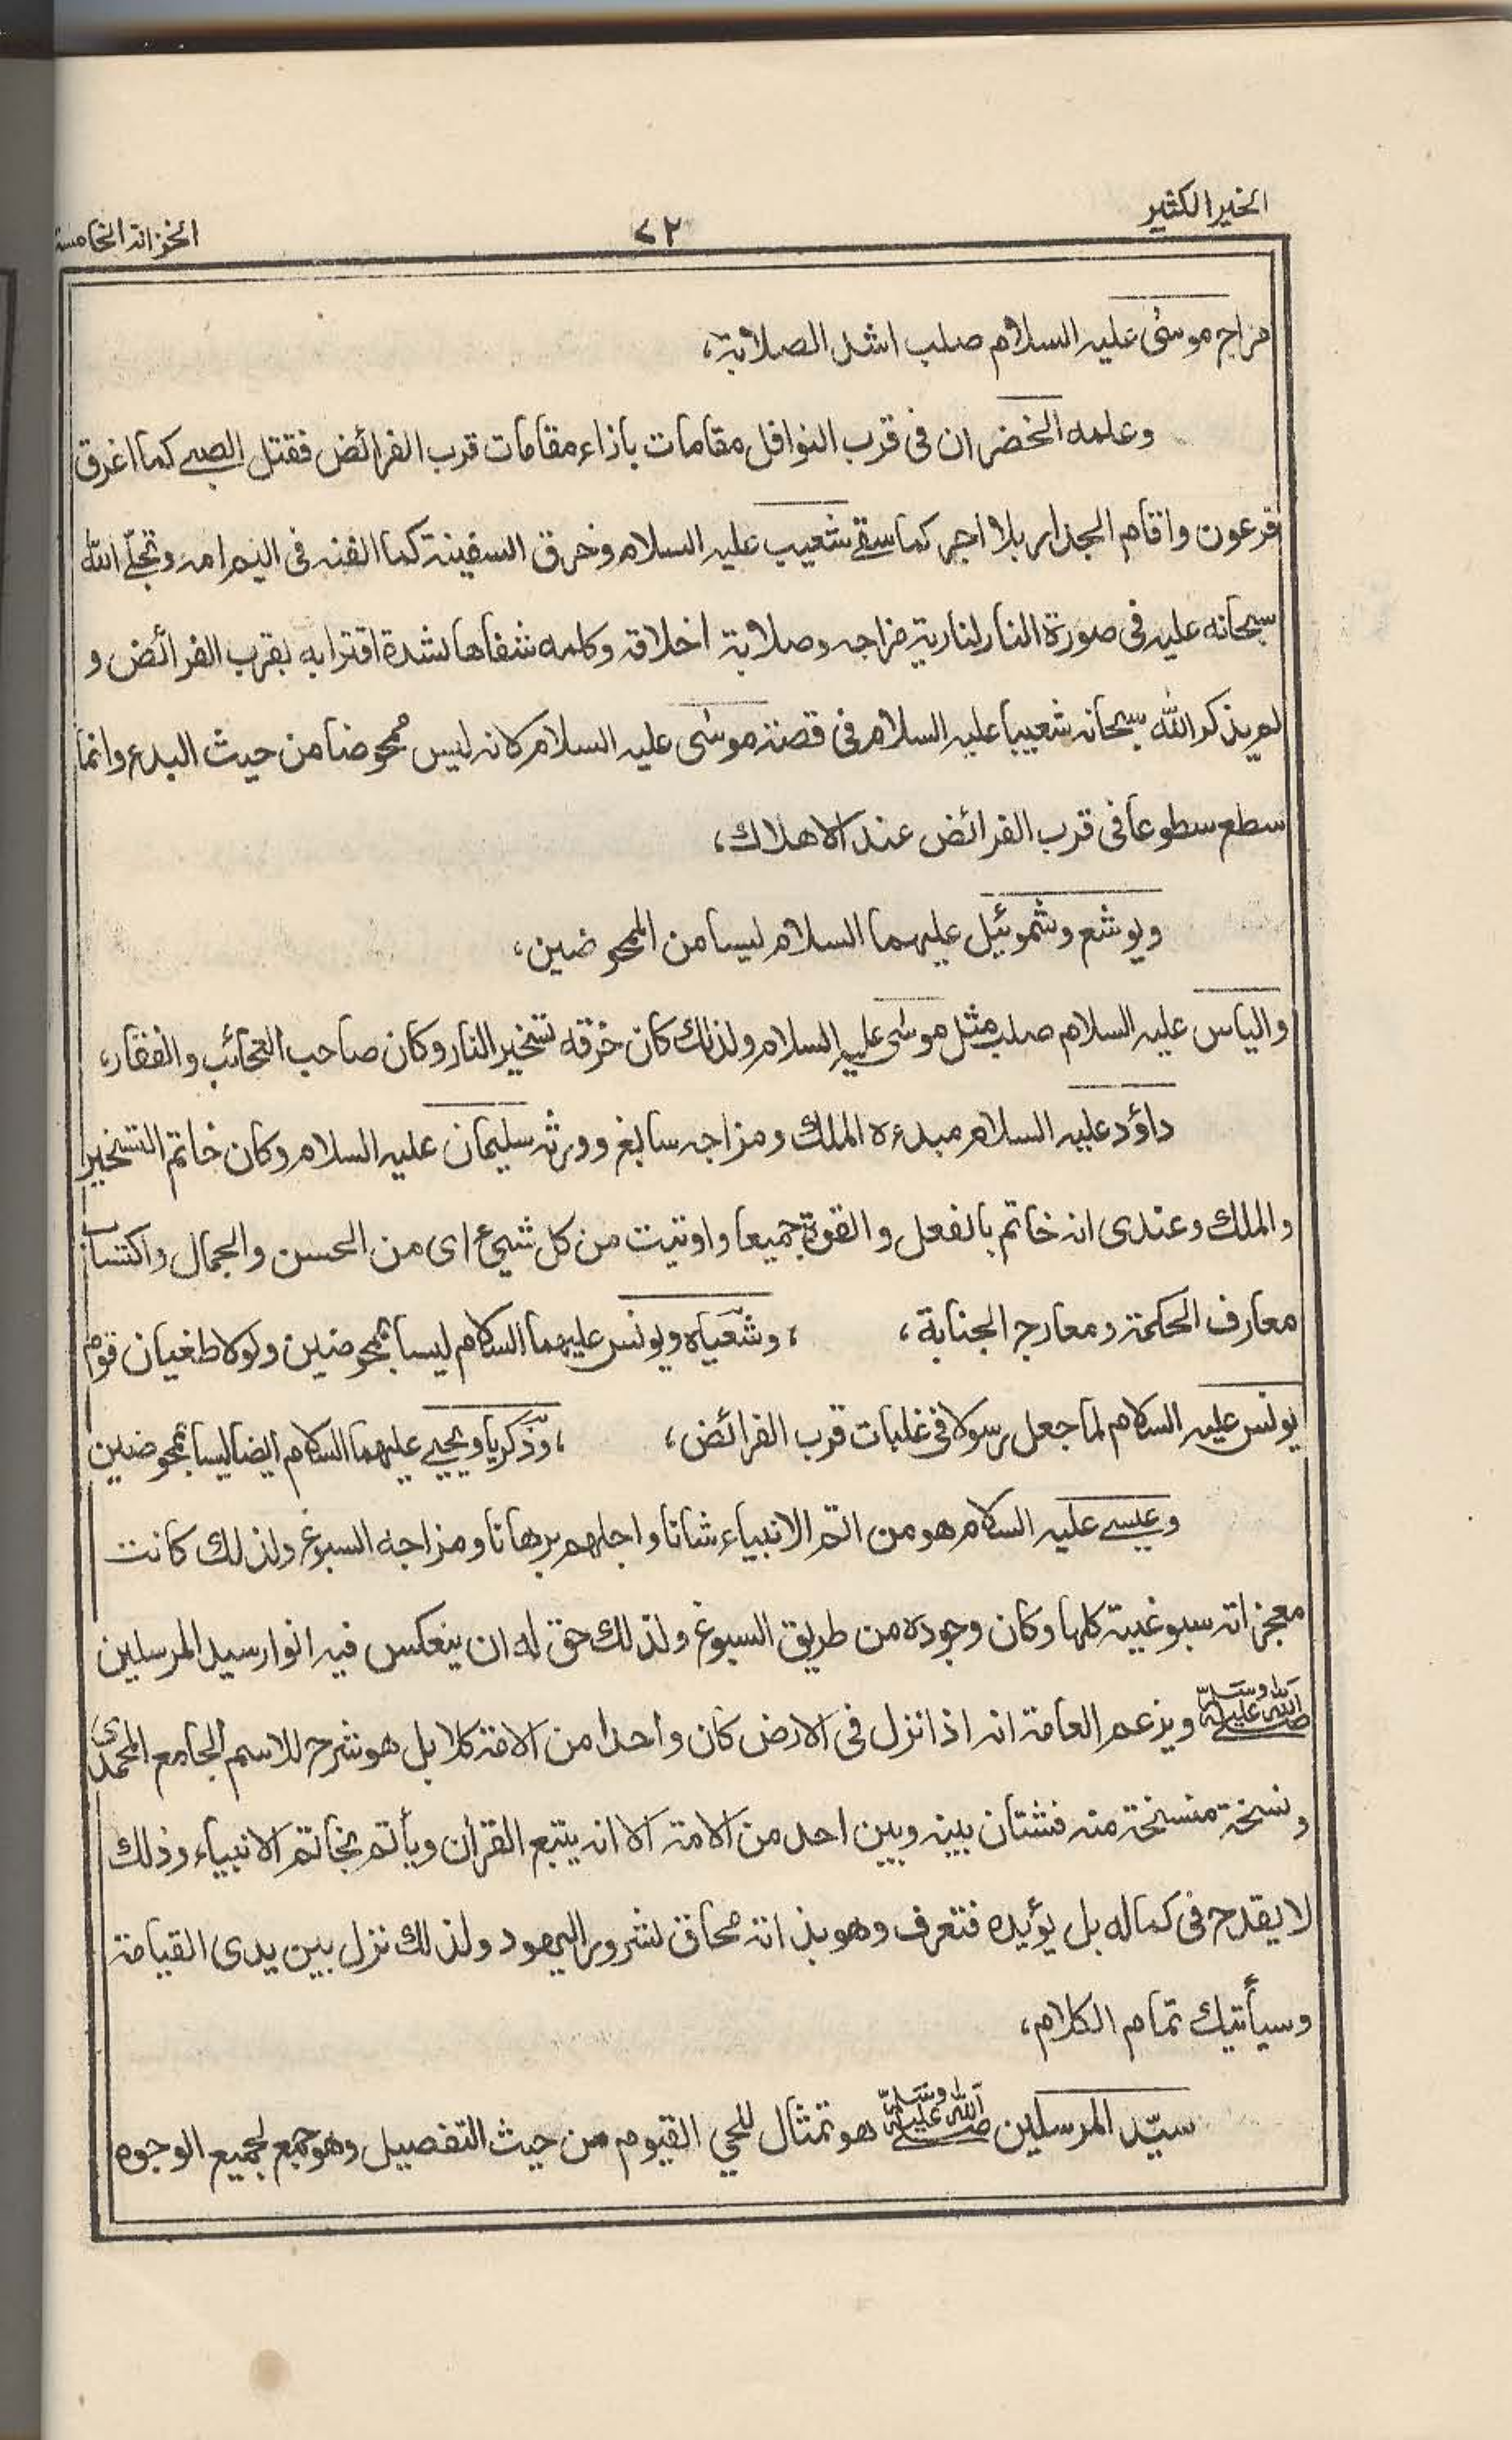 الخير الكثير
٧٢
الخزانة الخامسة
مزاج موسٰى عليه السلام صلب اشد الصلابة،
وعلمه الخضر ان فى قرب النوافل مقامات بازاء مقامات قرب الفرائض فقتل الصبے كما اغرق
فرعون واقام الجدار بلا اجر كما سقے شعيب عليه السلام وخرق السفينة كما القته فى اليم امه وتجلّے الله
سبحانه عليه فى صورة النار لنارية مزاجه وصلابة اخلاقه وكلمه شفاها لشدة اقترابه بقرب الفرائض و
لم يذكر الله سبحانه شعيبا عليه السلام فى قصة موسٰى عليه السلام كانه ليس ممحوضا من حيث البدء وانما
سطع سطوعا فى قرب الفرائض عند الاهلاك،
ويوشع وشموئيل عليهما السلام ليسا من الممحوضين،
والياس عليه السلام صلب مثل موسٰى عليه السلام ولذلك كان خرقه تسخير النار وكان صاحب والقفار،
داؤد عليه السلام مبدءه الملك ومزاجه سابغ وورثه سليمان عليه السلام وكان خاتم التسخير
والملك وعندى انه خاتم بالفعل والقوة جميعا واوتيت من كل شيء اى من الحسن والجمال واكتساب
معارف الحكمة ومعارج الجنابة، ، وشعياه ويونس عليهما السلام ليسا بممحوضين ولولا طغيان قوم
يونس عليه السلام لما جعل رسولا فى غلبات قرب الفرائض، ، وزكريا ويحيے عليهما السلام ايضا ليسا بممحوضين
وعيسے عليه السلام هو من اتم الانبياء شانا واجلهم برهانا ومزاجه السبوغ ولذلك كانت
معجزاته سبوغية كلها وكان وجوده من طريق السبوغ ولذلك حق له ان ينعكس فيه انوار سيد المرسلين
صلے الله عليه وسلم ويزعم العامة انه اذا نزل فى الارض كان واحدا من الامة كلا بل هو شرح للاسم الجامع المحمدى
ونسخة منسخة منه فشتان بينه وبين احد من الامة الا انه يتبع القران ويأتم بخاتم الانبياء وذلك
لا يقدح فى كماله بل يؤيده فتعرف وهو بذاته محاق لشرور اليهود ولذلك نزل بين يدى القيامة
وسيأتيك تمام الكلام،
سيّد المرسلين صلے الله عليه وسلم هو تمثال للحي القيوم من حيث التفصيل وهو جمع لجميع الوجوه